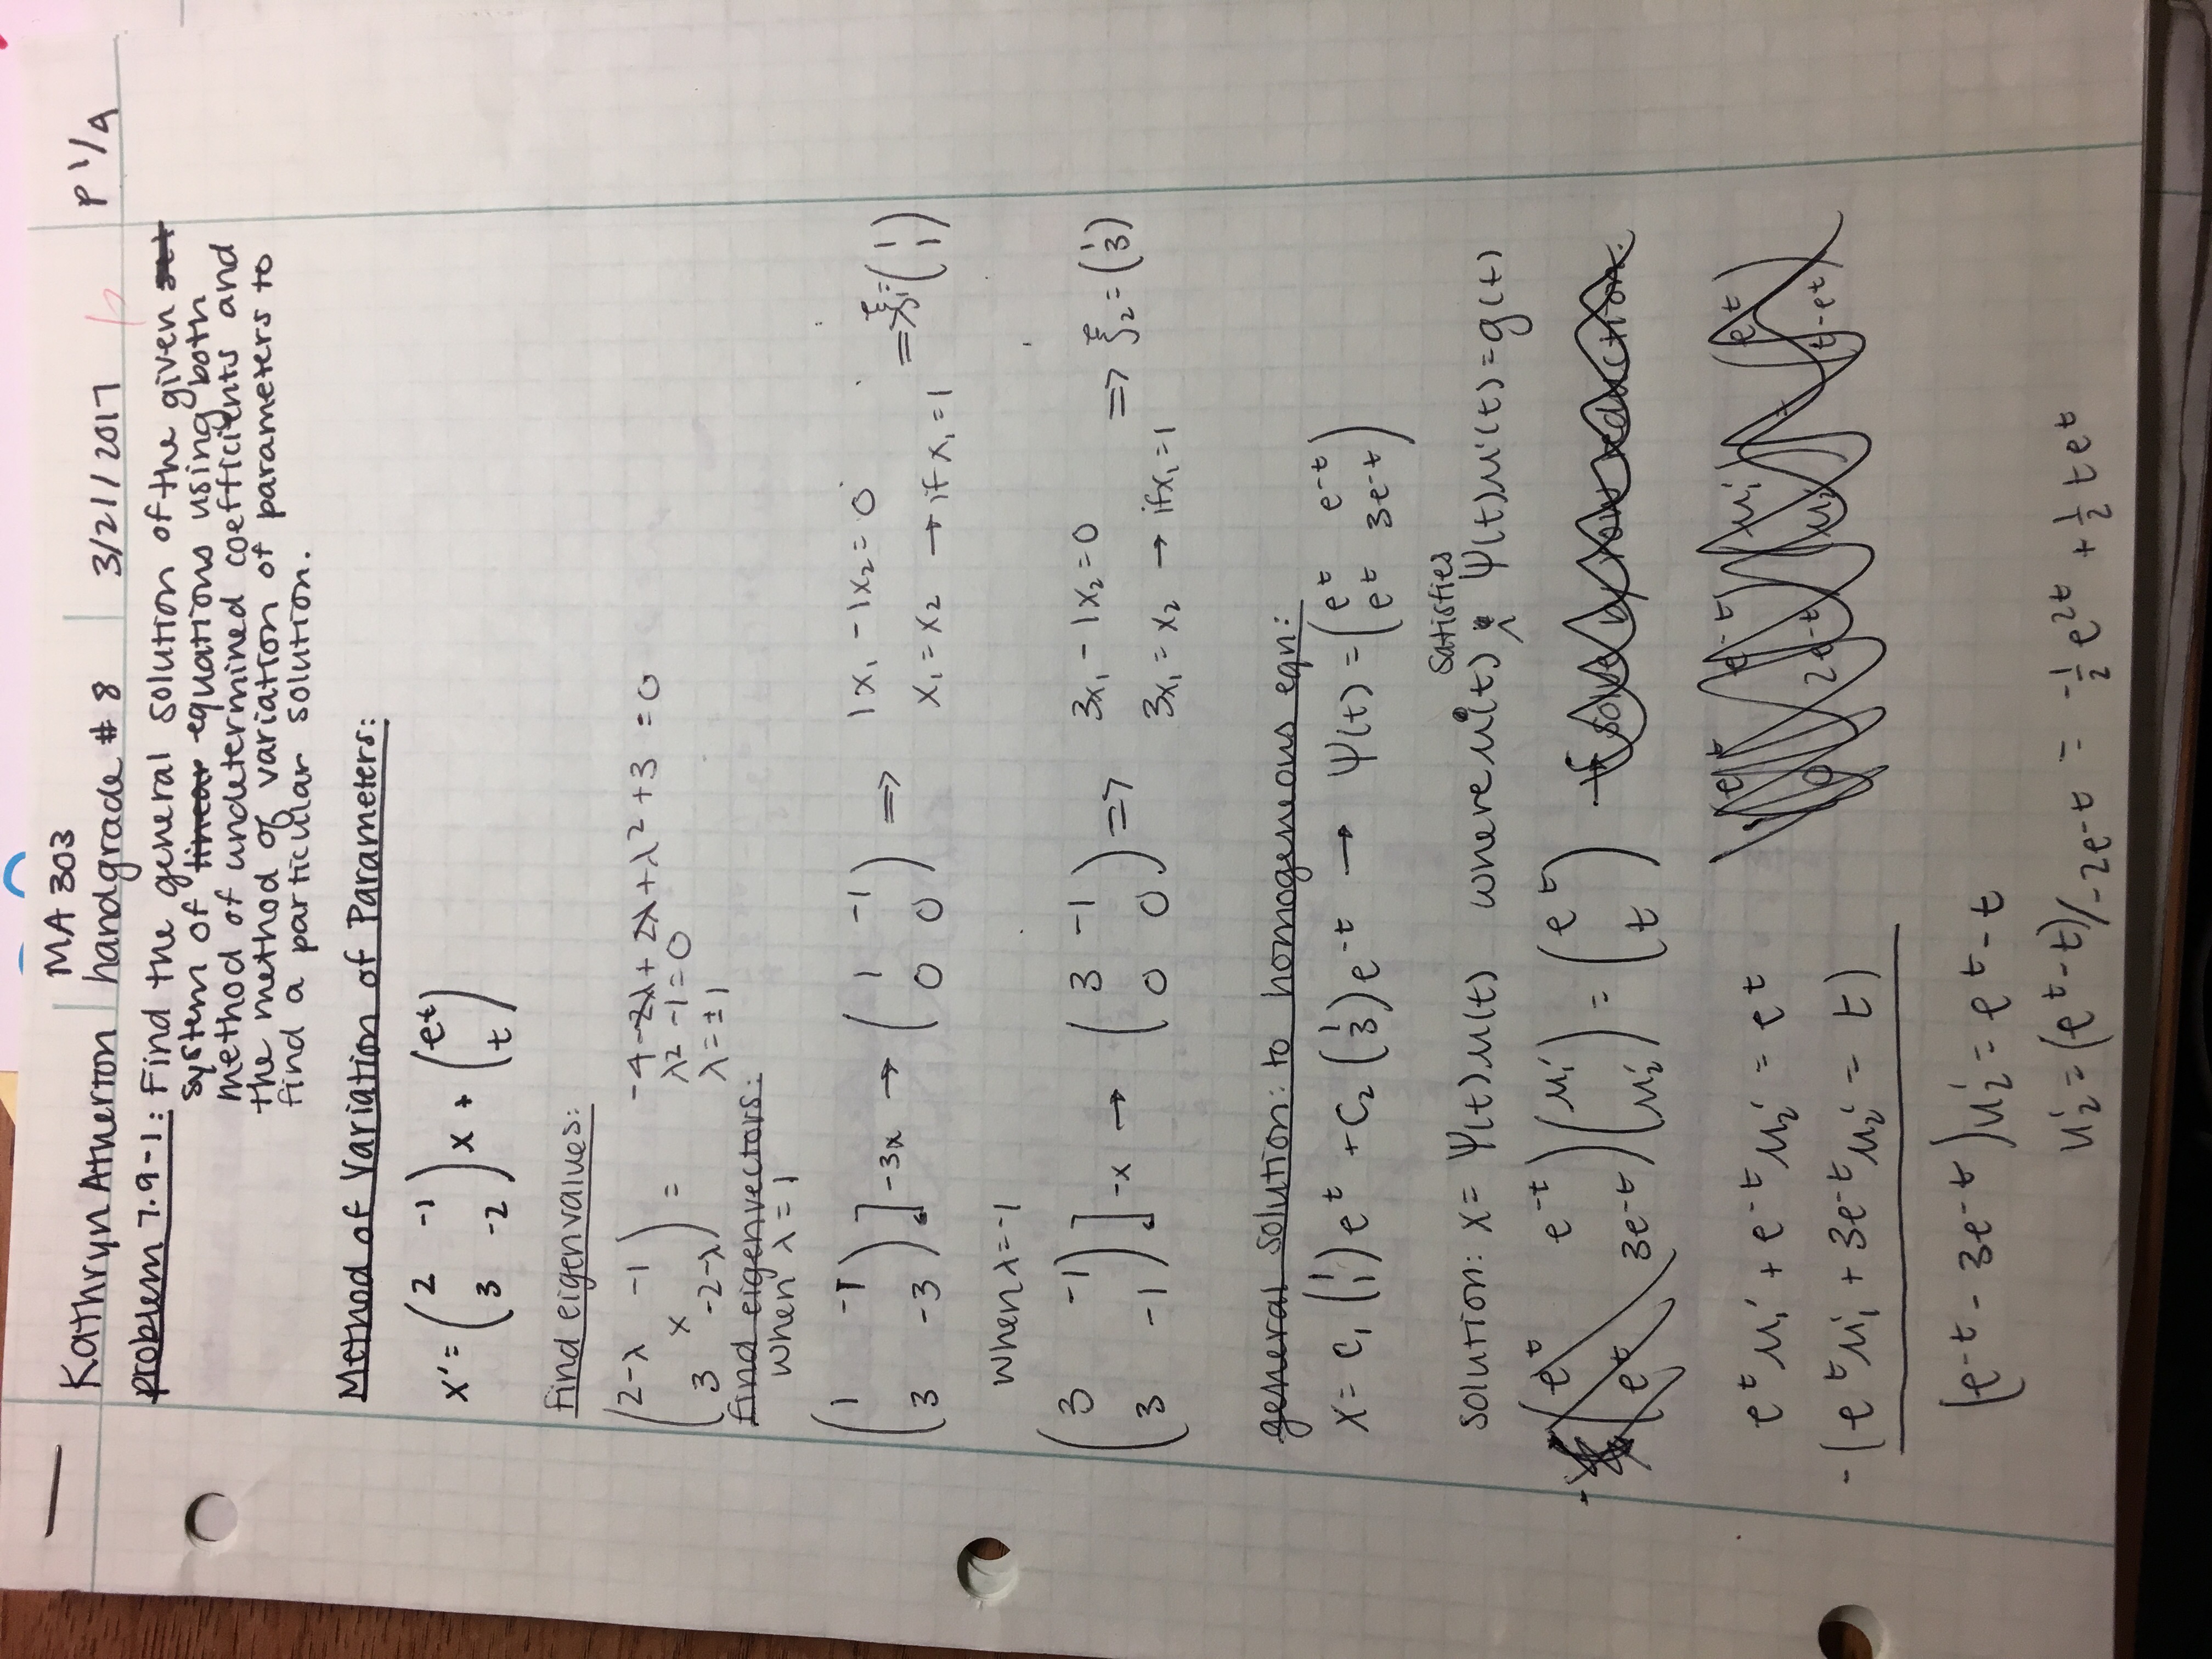 Kathryn Atherton MA 303 handgrade # 8 3/21/2017 P 1/4
problem 7.9-1: Find the general solution of the given set
system of linear equations using both
method of undetermined coefficients and
the method of variation of parameters to
find a particular solution.
Method of Variation of Parameters:
x' = ( 2 -1 ; 3 -2 ) x + ( e^t ; t )
find eigenvalues:
( 2-λ -1 ; 3 -2-λ ) = -4 -2λ + 2λ + λ² + 3 = 0
λ² - 1 = 0
λ = ± 1
find eigenvectors:
when λ = 1
( 1 -1 ; 3 -3 ) ] -3x → ( 1 -1 ; 0 0 ) ⇒ 1x₁ - 1x₂ = 0
x₁ = x₂ → if x₁ = 1 ⇒ ξ₁ = ( 1 ; 1 )
when λ = -1
( 3 -1 ; 3 -1 ) ] -x → ( 3 -1 ; 0 0 ) ⇒ 3x₁ - 1x₂ = 0
3x₁ = x₂ → if x₁ = 1 ⇒ ξ₂ = ( 1 ; 3 )
general solution: to homogeneous eqn:
x = c₁ ( 1 ; 1 ) e^t + c₂ ( 1 ; 3 ) e^-t → Ψ(t) = ( e^t e^-t ; e^t 3e^-t )
solution: x = Ψ(t)u(t) where u(t) satisfies Ψ(t)u'(t) = g(t)
( e^t e^-t ; e^t 3e^-t ) ( u₁' ; u₂' ) = ( e^t ; t ) solve by row reduction.
e^t u₁' + e^-t u₂' = e^t
-( e^t u₁' + 3e^-t u₂' = t )
( e^-t - 3e^-t ) u₂' = e^t - t
u₂' = (e^t - t)/-2e^-t = -1/2 e^2t + 1/2 t e^t